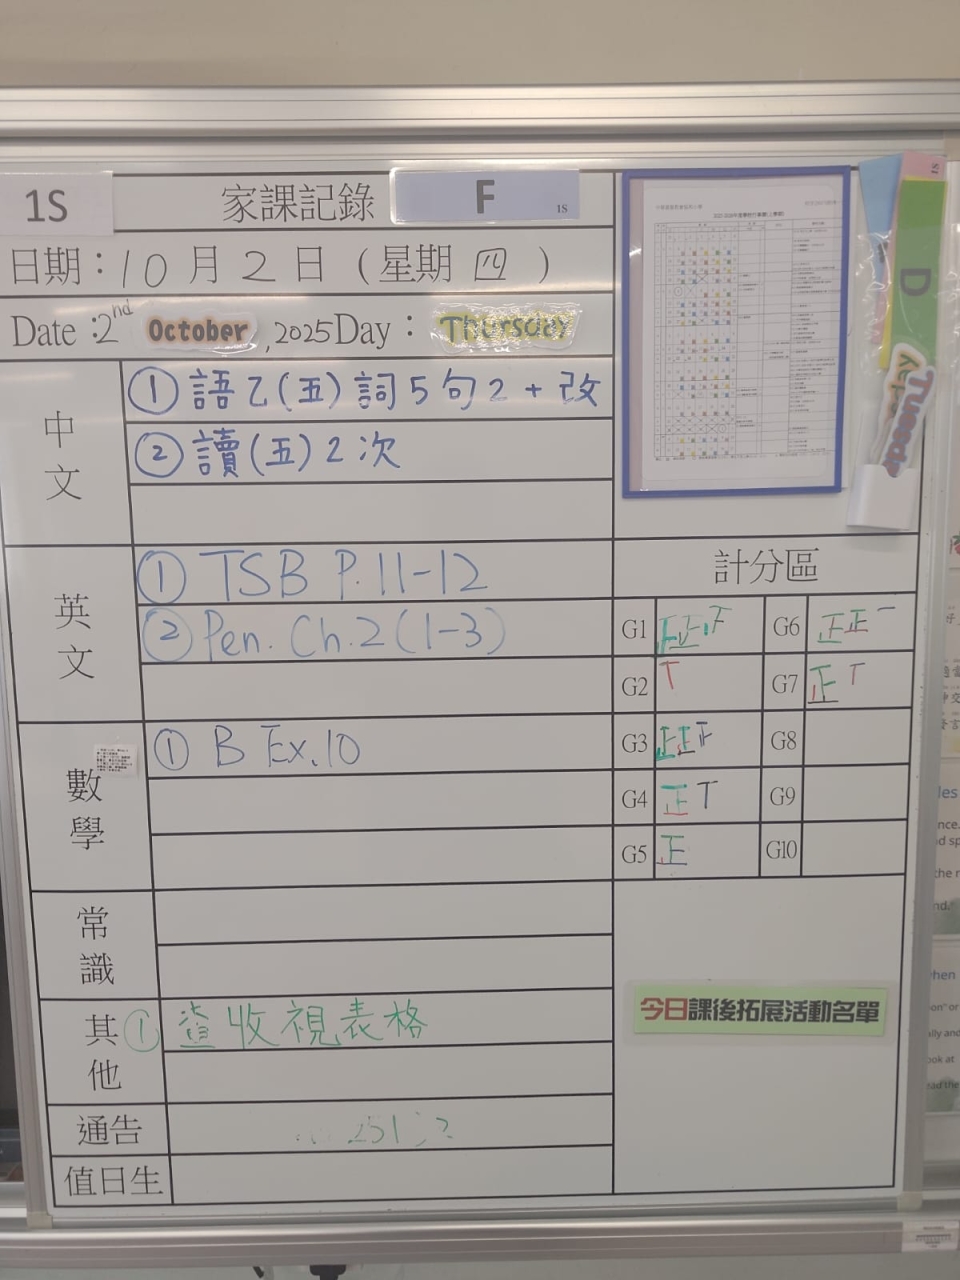 1S
家課記錄
F
1S
日期：10月2日（星期四）
Date：2nd October, 2025 Day：Thursday
中文
①語乙(五)詞5句2+改
②讀(五)2次
英文
①TSB P.11-12
②Pen. Ch.2(1-3)
數學
①B Ex.10
常識
其他
①
收視表格
通告
值日生
D
Tuesday
計分區
G1 正正下
G6 正正一
G2 T
G7 正T
G3 正正下
G8
G4 正T
G9
G5 正
G10
今日課後拓展活動名單